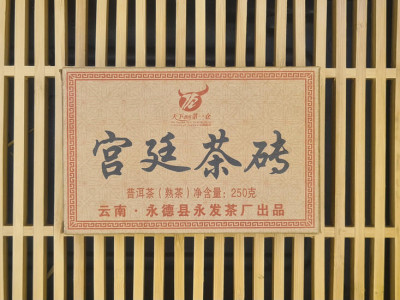 宫廷茶砖
普洱茶（熟茶）净含量：250克
云南·永德县永发茶厂出品